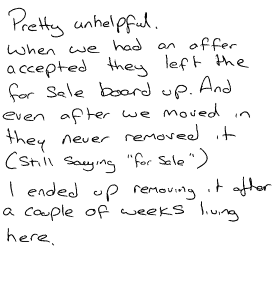 Pretty unhelpful.
When we had an offer
accepted they left the
for sale board up. And
even after we moved in
they never removed it
(still saying "for sale")
I ended up removing it after
a couple of weeks living
here.